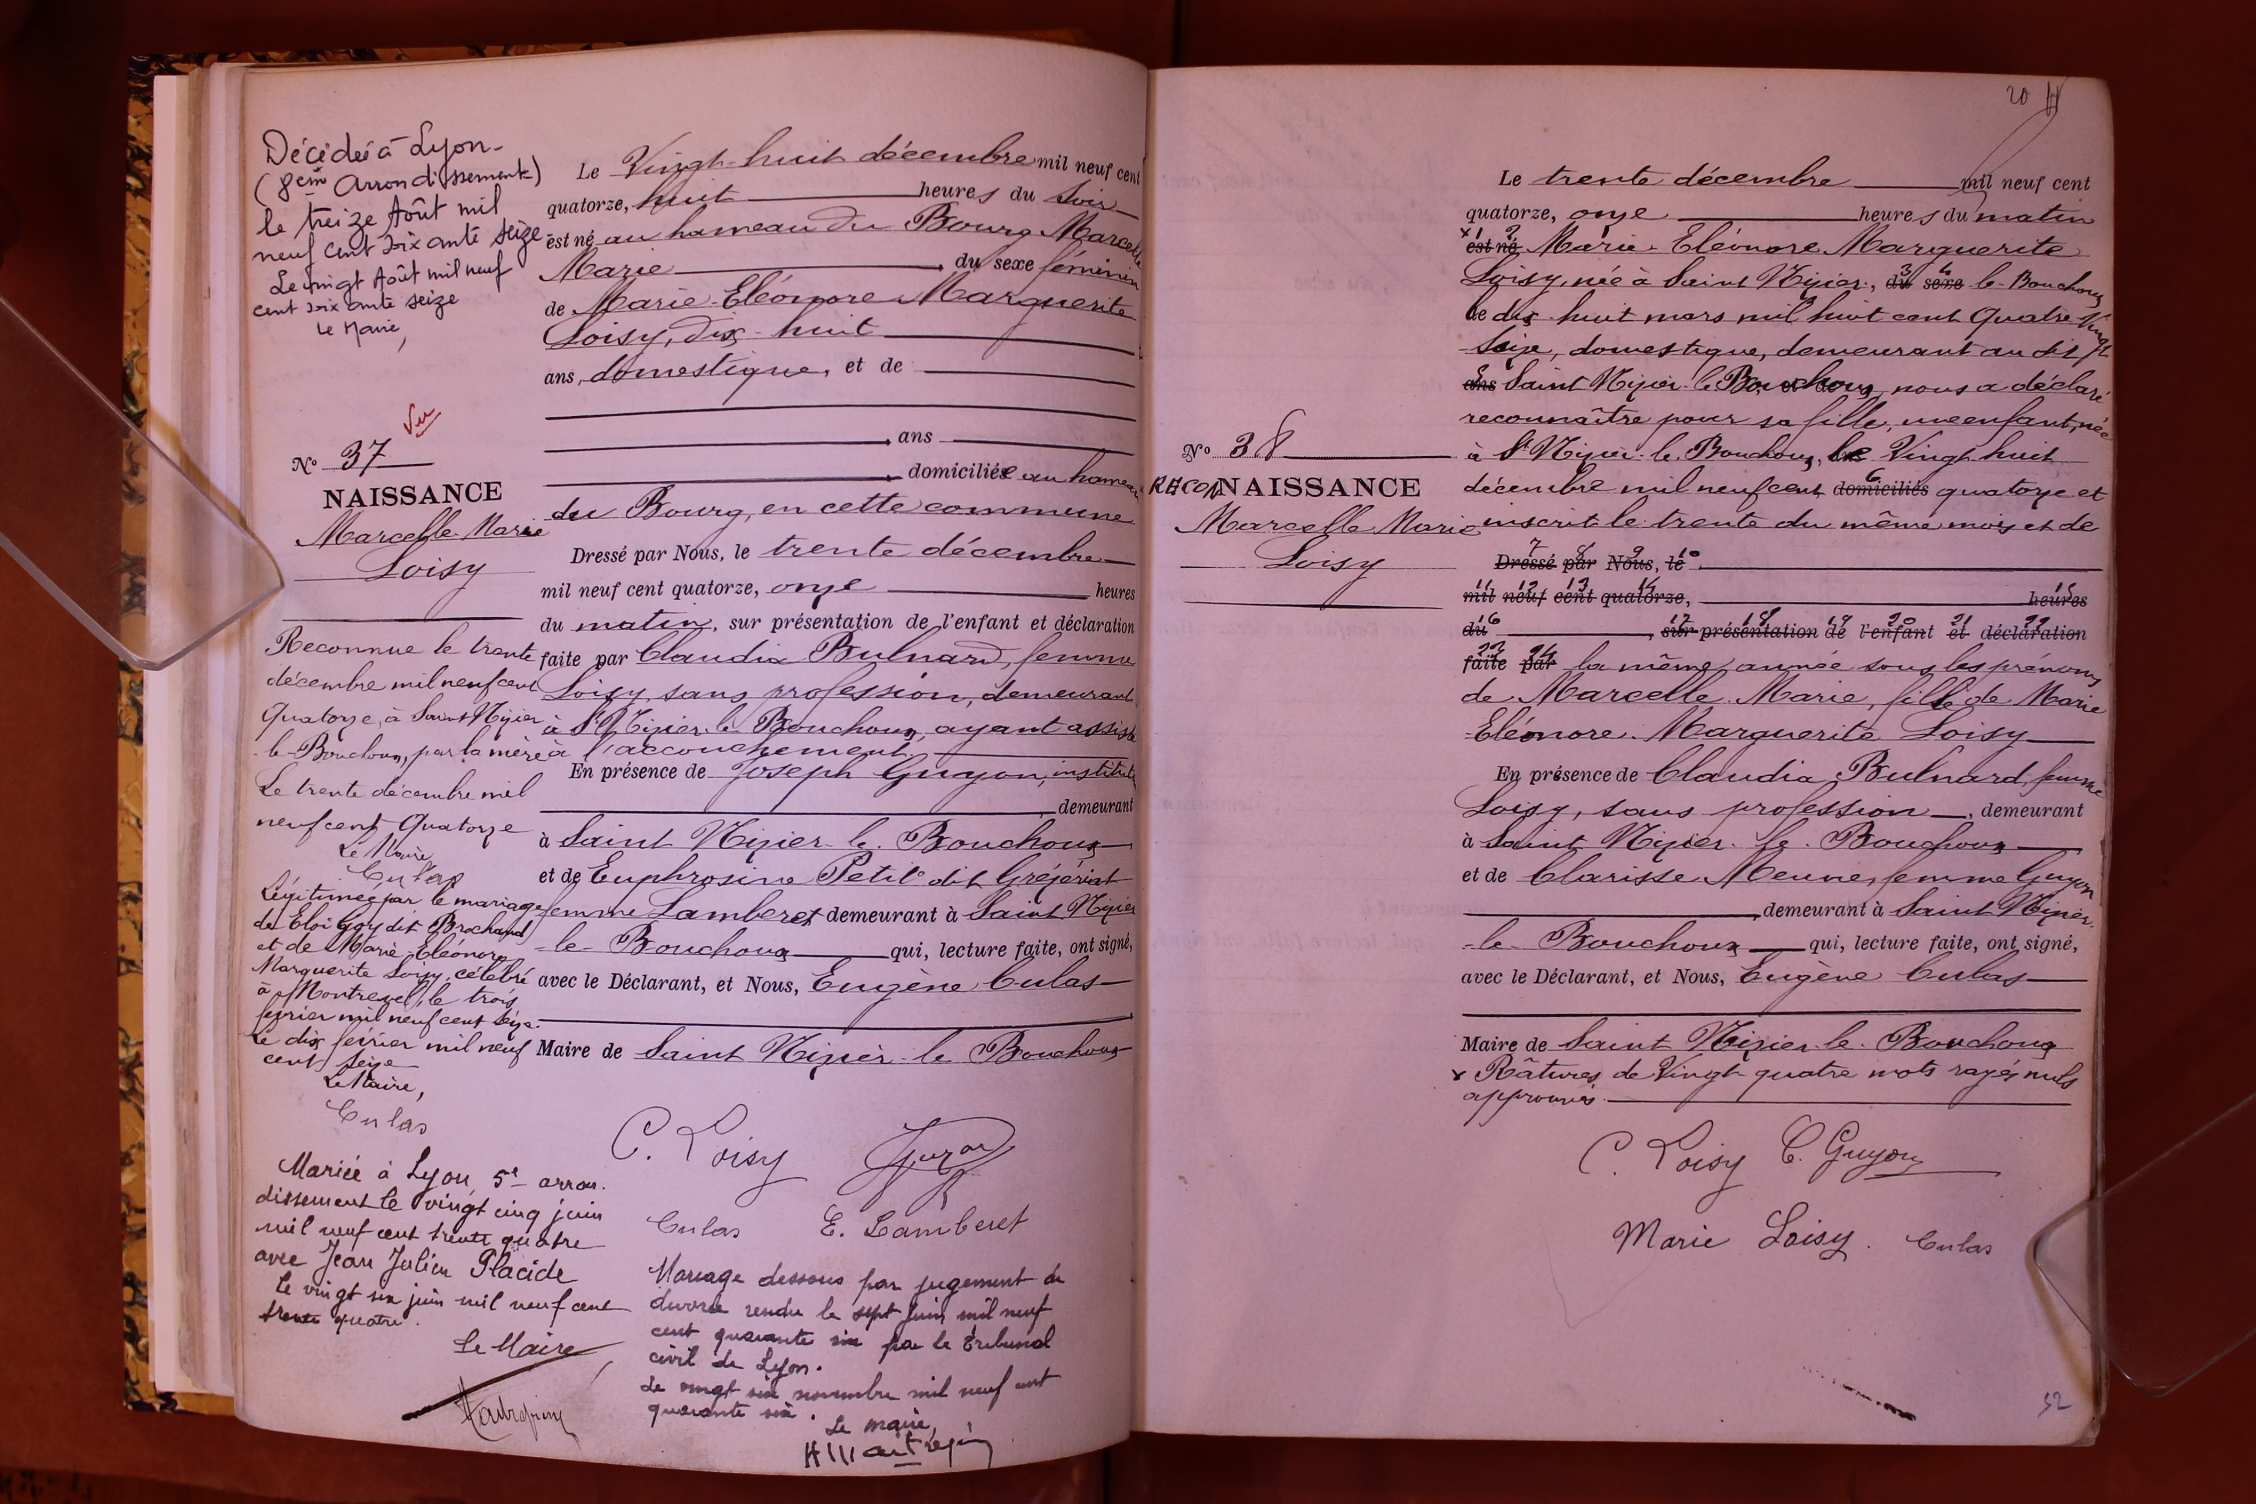 Décédée à Lyon
(8em Arrondissement)
le treize Août mil
neuf cent soixante seize
Le vingt Août mil neuf
cent soixante seize
Le Maire,
Vu
N° 37
NAISSANCE
Marcelle Marie
Loisy
Reconnue le trente
décembre mil neuf cent
quatorze, à Saint Nizier
le Bouchoux, par la mère
Le trente décembre mil
neuf cent quatorze
Le Maire
Culas
Légitimée par le mariage
de Eloi Goy dit Brochand
et de Marie Eléonore
Marguerite Loisy, célébré
à Montrevel, le trois
février mil neuf cent seize.
Le dix février mil neuf
cent seize
Le Maire,
Culas
Mariée à Lyon, 5e arron-
dissement le vingt cinq juin
mil neuf cent trente quatre
avec Jean Julien Placide
Le vingt six juin mil neuf cent
trente quatre.
Le Maire
Le Vingt-huit décembre mil neuf cent
quatorze, huit heures du soir
est né au hameau du Bourg Marcelle
Marie, du sexe féminin
de Marie-Eléonore Marguerite
Loisy, dix-huit
ans, domestique, et de
, ans
, domiciliée au hameau
du Bourg, en cette commune
Dressé par Nous, le trente décembre
mil neuf cent quatorze, onze heures
du matin, sur présentation de l'enfant et déclaration
faite par Claudia Bulnard, femme
Loisy, sans profession, demeurant
à St Nizier-le-Bouchoux, ayant assisté
à l'accouchement
En présence de Joseph Guyon, instituteur
, demeurant
à Saint Nizier-le-Bouchoux
et de Euphrosine Petit dit Gréjériat
femme Lamberet demeurant à Saint Nizier
-le-Bouchoux qui, lecture faite, ont signé,
avec le Déclarant, et Nous, Eugène Culas
Maire de Saint Nizier-le-Bouchoux
C. Loisy Guyon
Culas E. Lamberet
Mariage dessous par jugement de
divorce rendu le sept juin mil neuf
cent quarante six par le Tribunal
civil de Lyon.
Le vingt six novembre mil neuf cent
quarante six.
Le maire,
20
N° 38
RECONNAISSANCE
Marcelle Marie
Loisy
Le trente décembre mil neuf cent
quatorze, onze heures du matin
x 1 2
est né Marie-Eléonore Marguerite
3 4
Loisy, née à Saint Nizier, du sexe le-Bouchoux
le dix-huit mars mil huit cent quatre-vingt
seize, domestique, demeurant au dit
ans Saint Nizier-le-Bouchoux, nous a déclaré
reconnaître pour sa fille, une enfant, née
à St Nizier-le-Bouchoux, le Vingt huit
6
décembre mil neuf cent domiciliés quatorze et
inscrit le trente du même mois et de
7 8 9 10
Dressé par Nous, le
11 12 13 14 15
mil neuf cent quatorze, heures
16 17 18 19 20 21 22
du, sur présentation de l'enfant et déclaration
23 24
faite par la même année sous les prénoms
de Marcelle Marie, fille de Marie
Eléonore Marguerite Loisy
En présence de Claudia Bulnard, femme
Loisy, sans profession, demeurant
à Saint Nizier-le-Bouchoux
et de Clarisse Meune, femme Guyon
, demeurant à Saint Nizier-
-le-Bouchoux qui, lecture faite, ont signé,
avec le Déclarant, et Nous, Eugène Culas
Maire de Saint Nizier-le-Bouchoux
x Râtures de Vingt quatre mots rayés nuls
approuvés.
C. Loisy C. Guyon
Marie Loisy. Culas
52